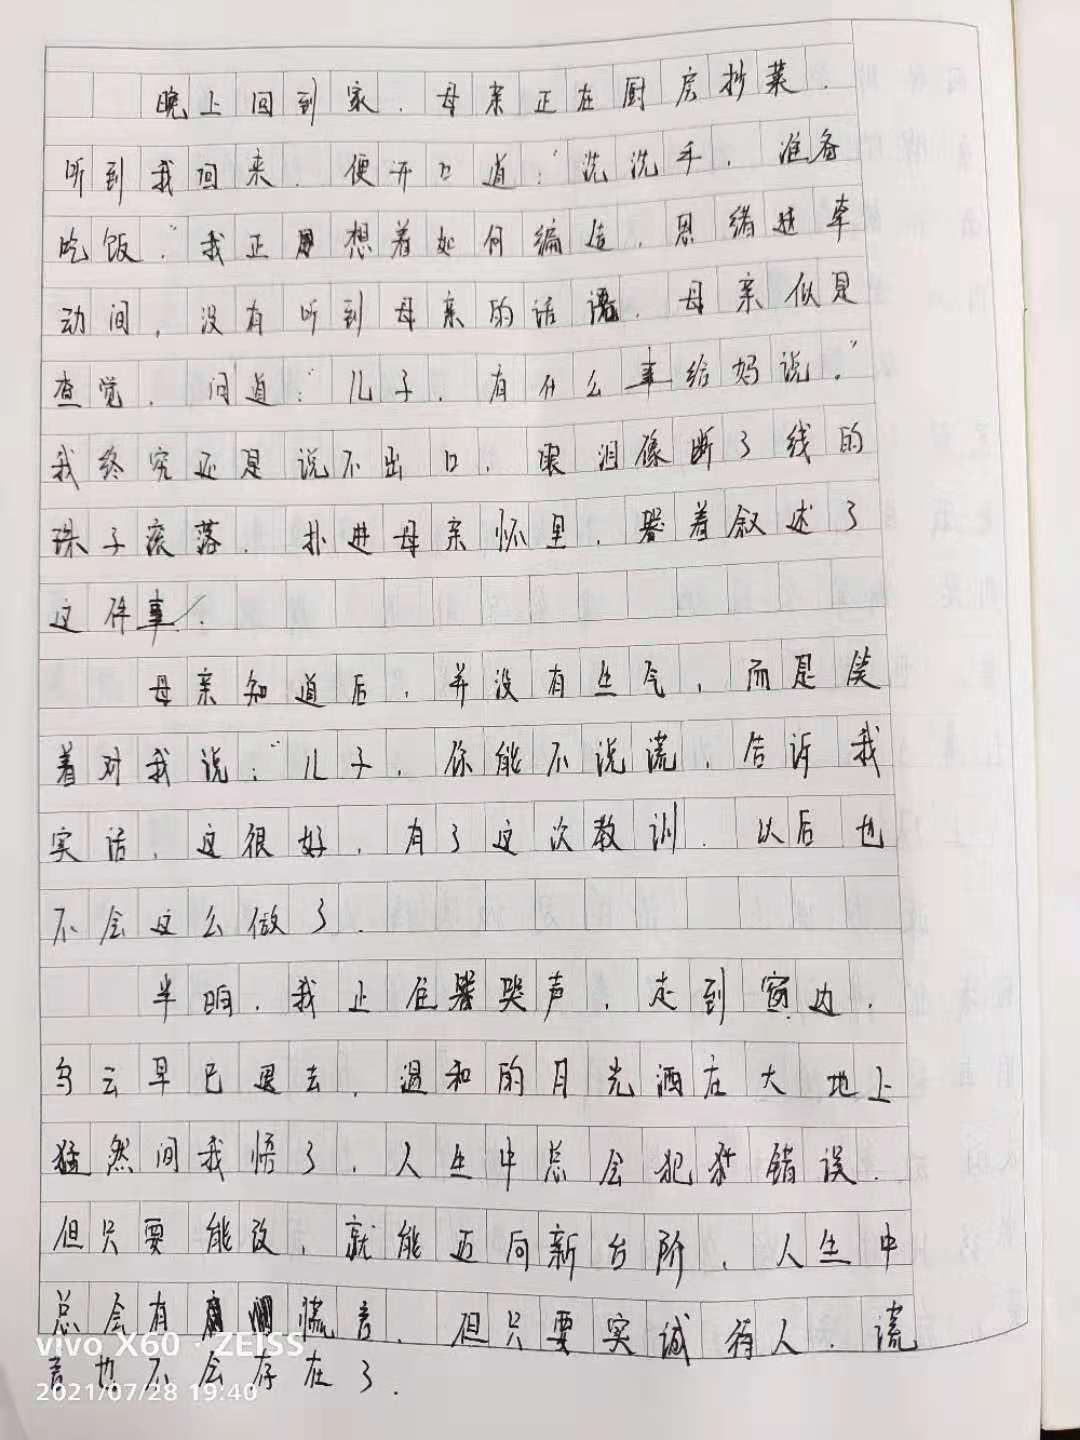 晚上回到家，母亲正在厨房抄菜，
听到我回来，便开口道：“洗洗手，准备
吃饭。”我正想着如何编造，思绪迁牵
动间，没有听到母亲的话语，母亲似是
查觉，问道：“儿子，有什么事给妈说。”
我终究还是说不出口，眼泪像断了线的
珠子滚落，扑进母亲怀里，哭着叙述了
这件事。
母亲知道后，并没有生气，而是笑
着对我说：“儿子，你能不说谎，告诉我
实话，这很好，有了这次教训，以后也
不会这么做了．
半晌，我止住哭声，走到窗边，
乌云早已退去，温和的月光洒在大地上
猛然间我悟了，人生中总会犯错误，
但只要能改，就能迈向新台阶，人生中
总会有谎言，但只要实诚待人，谎
言也不会存在了．
vivo X60 · ZEISS
2021/07/28 19:40